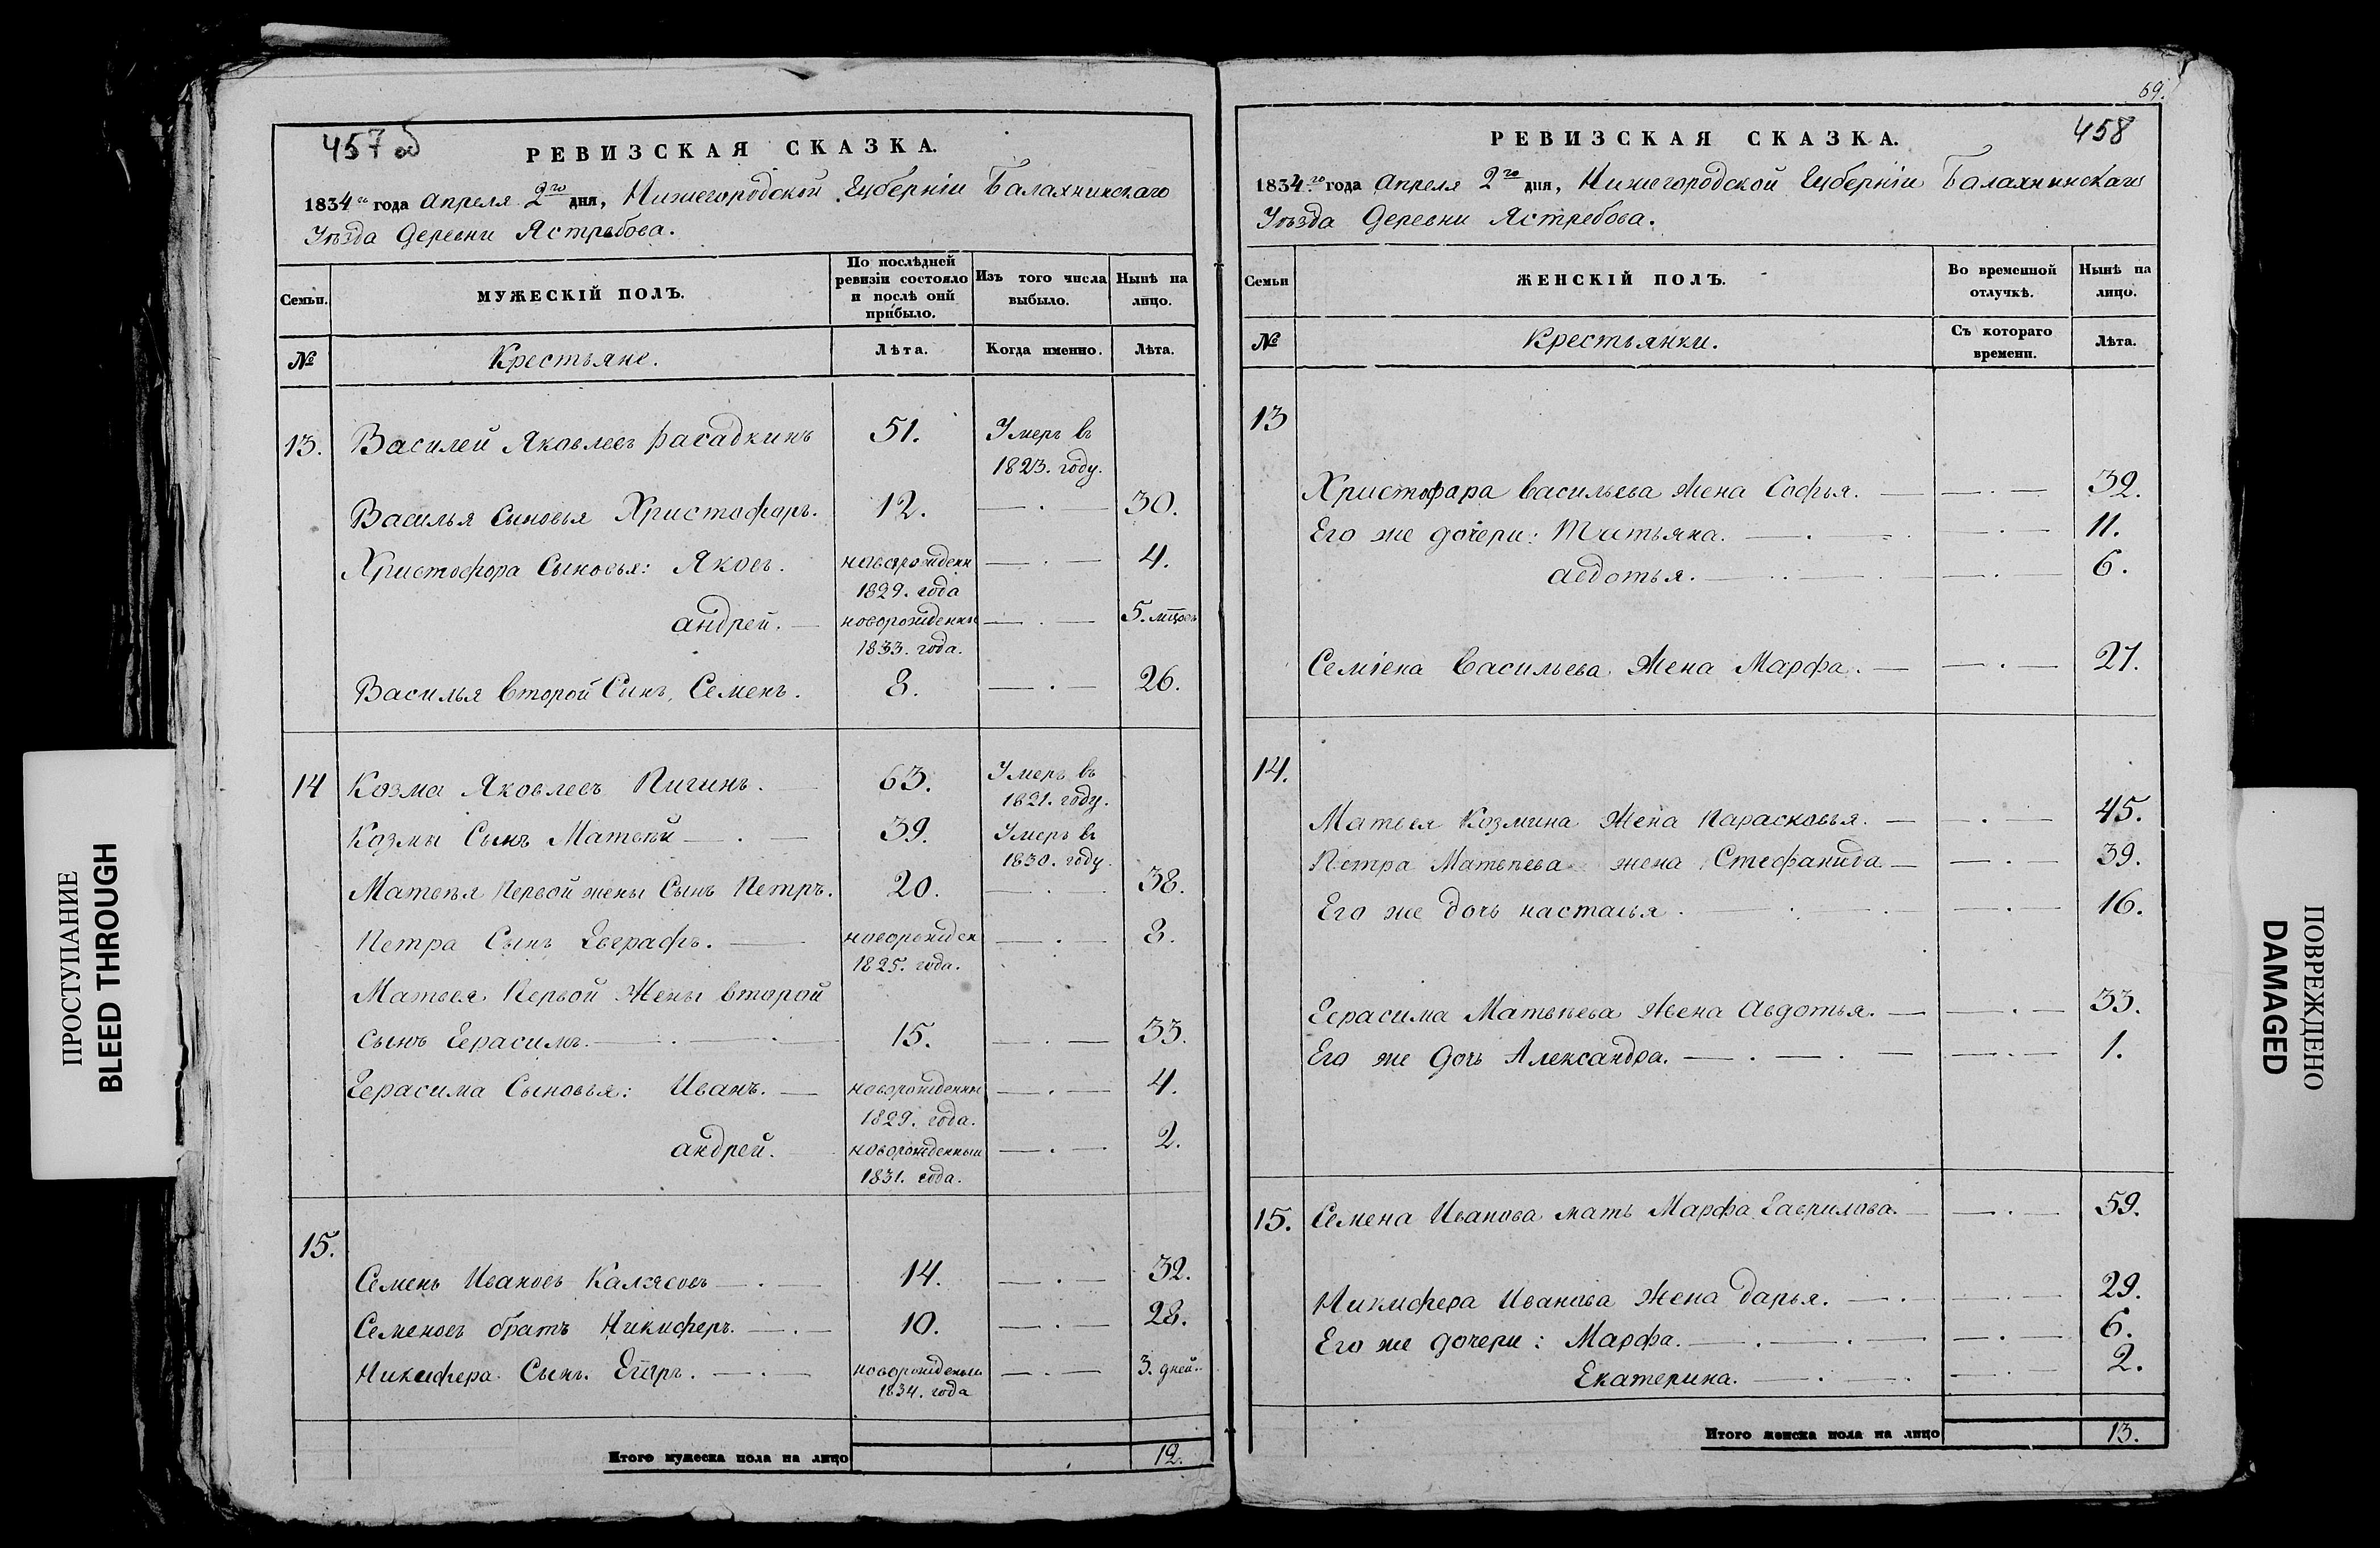 457 об
РЕВИЗСКАЯ СКАЗКА.
1834го года Апреля 2го дня, Нижегородской Губерніи Балахнинскаго
Уѣзда Деревни Ястребова.
Семьи.
МУЖЕСКІЙ ПОЛЪ.
По послѣдней ревизіи состояло и послѣ оной прибыло.
Изъ того числа выбыло.
Нынѣ на лицо.
№
Крестьяне.
Лѣта.
Когда именно.
Лѣта.
13. Василей Яковлевъ Расадкинъ 51. Умеръ въ
1823. году.
Василья Сыновья Христофоръ. 12. — . — 30.
Христофора Сыновья: Яковъ. новорожденн — . — 4.
1829. года
андрей. — новорожденны — . — 5. мцовъ
1833. года.
Василья второй Сынъ, Семенъ. 8. — . — 26.
14 Козма Яковлевъ Пигинъ. 63. Умеръ въ
1821. году.
Козмы Сынъ Матвѣй — . — 39. Умеръ въ
1830. году.
Матвѣя Первой жены Сынъ Петръ. 20. — . — 38.
Петра Сынъ Евграфъ. — новорожден — . — 8.
1825. года.
Матвея Первой Жены второй
сынъ Герасимъ. — . — 15. — . — 33.
Герасима Сыновья: Иванъ. — новорожденны — . — 4.
1829. года.
андрей. новорожденный — . — 2.
1831. года.
15.
Семенъ Ивановъ Калясовъ — . — 14. — . — 32.
Семеновъ братъ Никифоръ. — . — 10. — . — 28.
Никифера Сынъ. Егоръ. — . — новорожденый — . — 3. дней.
1834. года
Итого мужеска пола на лицо 12.
69.
458
РЕВИЗСКАЯ СКАЗКА.
1834го года Апреля 2го дня, Нижегородской Губерніи Балахнинскаго
Уѣзда Деревни Ястребова.
Семьи
ЖЕНСКІЙ ПОЛЪ.
Во временной отлучкѣ.
Нынѣ на лицо.
№
Крестьянки.
Съ котораго времени.
Лѣта.
13
Христофара васильева Жена Софья. — — . — 32.
Его же дочери: Татьяна. — . — — . — 11.
авдотья. — . — — . — 6.
Семіона Васильева Жена Марфа. — — . — 27.
14.
Матвея Козмина Жена Парасковья. — — . — 45.
Петра Матвѣева жена Стефанида — — . — 39.
Его же дочь настасья. — . — — . — 16.
Герасима Матвѣева Жена Авдотья. — — . — 33.
Его же дочь Александра. — . — . — — . — 1.
15. Семена Иванова мать Марфа Гаврилова. — — . — 59.
Никифера Иванова Жена дарья. — . — . — 29.
Его же дочери: Марфа. — . — . — — . — 6.
Екатерина. — . — . — . 2.
Итого женска пола на лицо 13.
ПРОСТУПАНИЕ
BLEED THROUGH
ПОВРЕЖДЕНО
DAMAGED